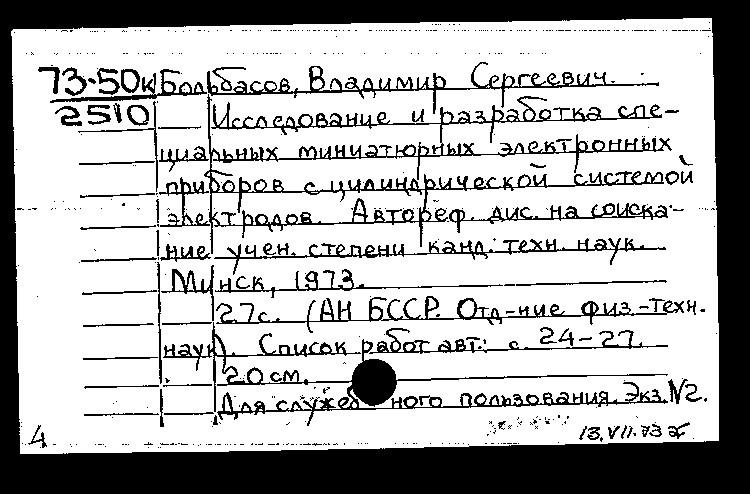 73-50к Болбасов, Владимир Сергеевич.
2510 Исследование и разработка спе-
циальных миниатюрных электронных
приборов с цилиндрической системой
электродов. Автореф. дис. на соиска-
ние учен. степени канд. техн. наук.
Минск, 1973.
27с. (АН БССР. Отд-ние физ.-техн.
наук). Список работ авт.: с. 24-27.
20см.
Для служебного пользования. Экз. №2.
4 13.VII.73